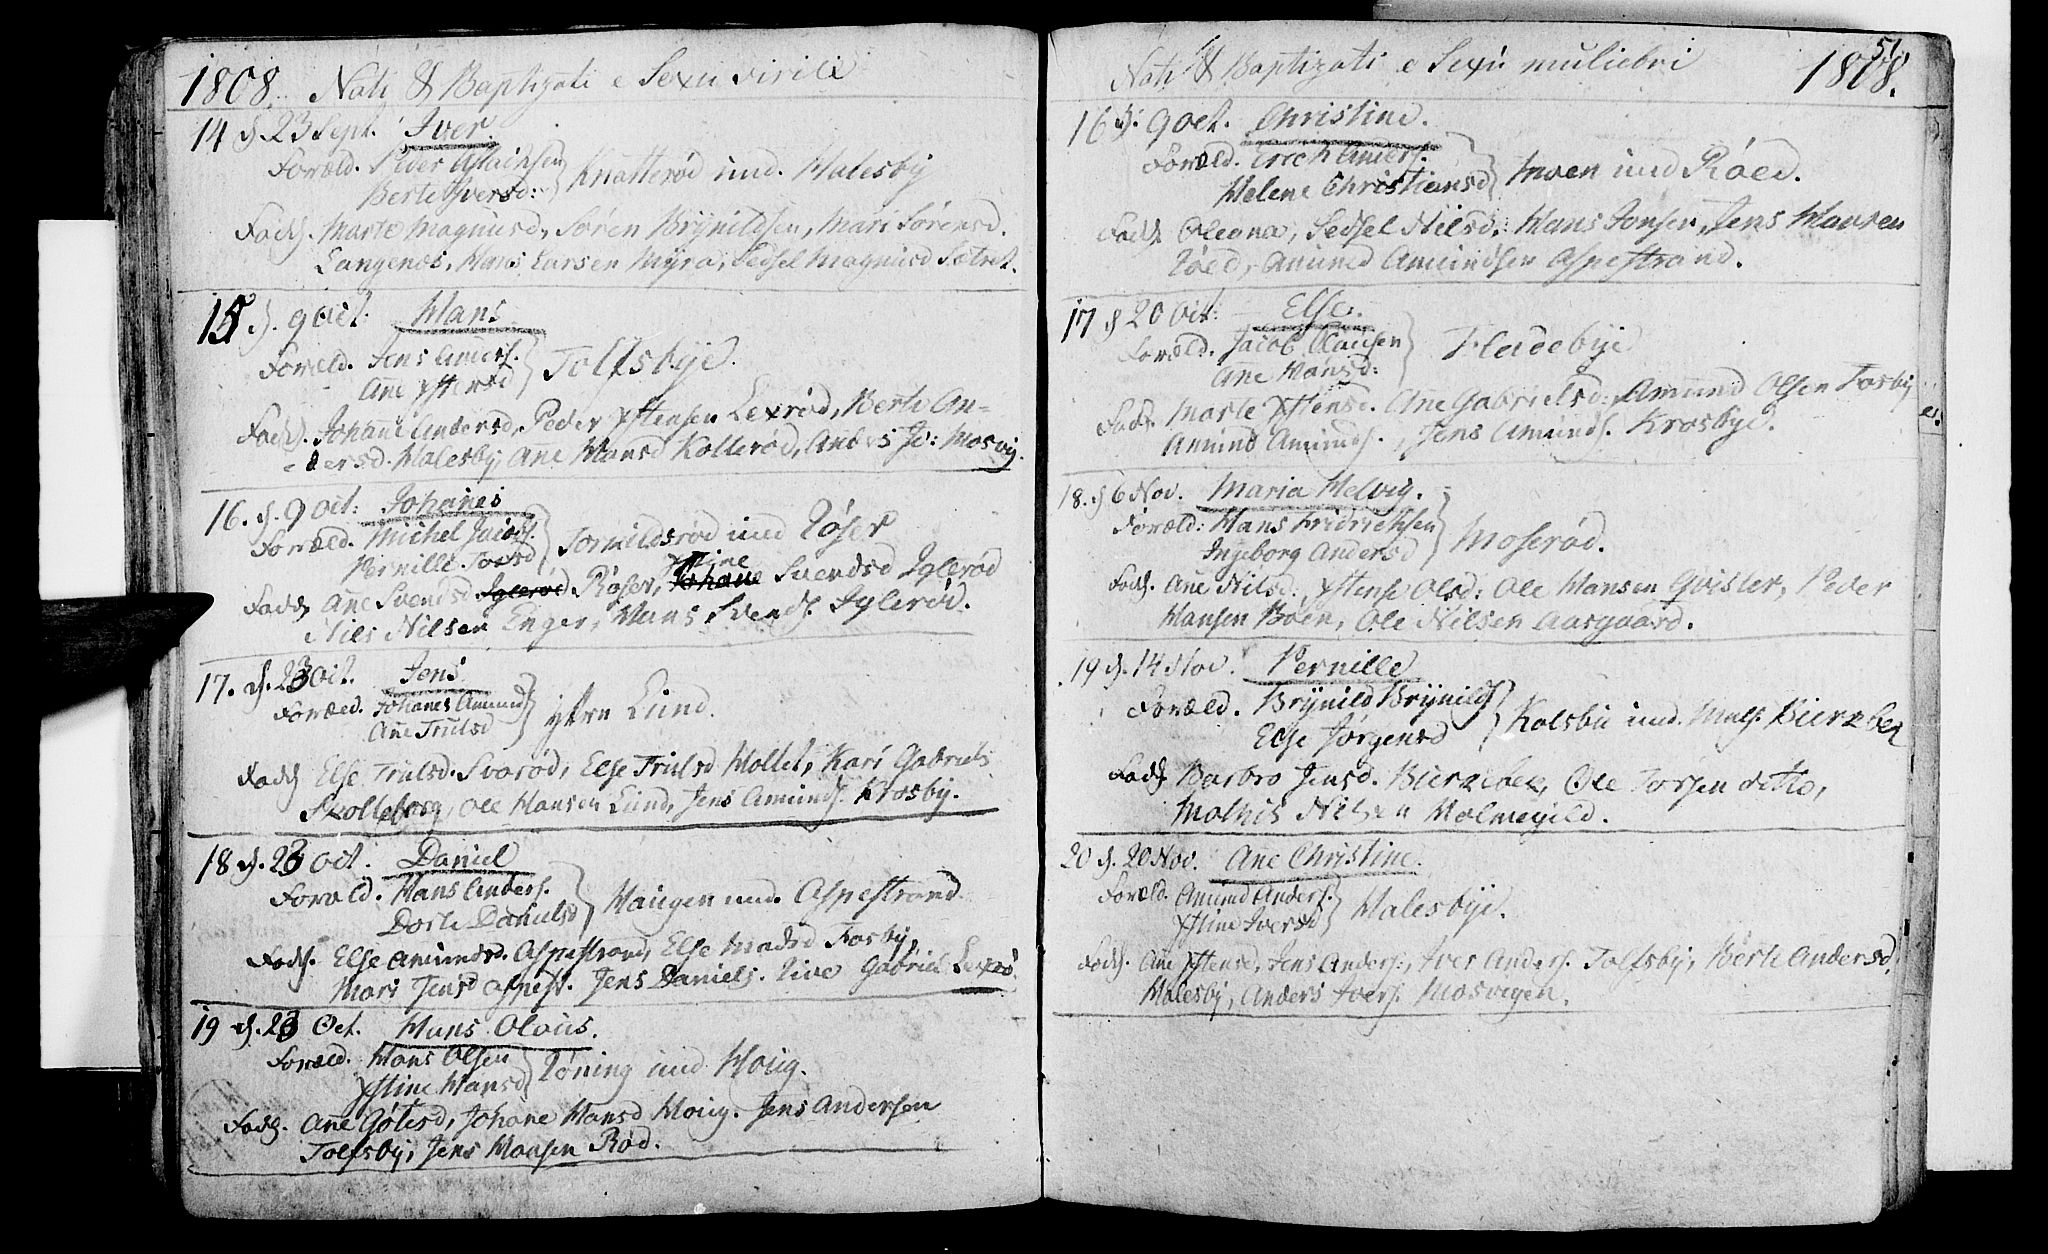 1808. Nati & Baptizati e Sexu virili
14 d. 23 Sept. Iver.
Foræld. Peder Aslachsen
Berte Iversd: Knatterød und. Halesby
Fadd. Marte Magnusd, Søren Brynildsen, Mari Sørensd.
Langenes, Hans Larsen Myra, Sidsel Magnusd Sætret.
15 d. 9 Oct: Hans
Foræld. Jens Anders.
Ane Xstensd Tolfsbye.
Fadd. Johane Andersd, Peder Xstensen Lexrød, Berte An-
dersd. Halesby, Ane Hansd Kollerød, Anders Iv: Mosvig.
16. d. 9 Oct: Johanes
Foræld. Michel Jacobs.
Pernille Torsd, Tormildsrød und Røser
Fadd. Ane Svendsd Røser, Xstine Svendsd Iglerød
Nils Nilsen Enger, Hans Svends. Iglerød.
17. d. 23 Oct. Jens
Foræld. Johanes Amund
Ane Trulsd ytre Lund.
Fadd Else Trulsd. Svarød, Else Trulsd Holtet, Kari Gabriels
Skolleborg, Ole Hansen Lund, Jens Amunds. Krosby.
18 d. 23 Oct. Daniel
Foræld. Hans Anders.
Dorte Danielsd Haugen und. Aspestrand
Fadd. Else Amundsd. Aspestrand, Else Madsd Fosby,
Mari Jensd Aspest. Jens Daniels. Gabriel Lexrø.
19 d. 23 Oct. Hans Olaus.
Foræld. Hans Olsen
Xstine Hansd Røning und Houg.
Fadd. Ane Gøtesd, Johane Hansd Houg. Jens Andersen
Tolfsby, Jens Hansen Rød.
51
Nati & Baptizati e Sexu muliebri 1808.
16 d. 9 Oct. Christine.
Foræld. Erich Anders.
Helene Christiansd Hven und Røed.
Fadd Oleana, Sidsel Nilsd,: Hans Jonsen, Jens Hansen
Røed, Amund Amundsen Aspestrand.
17 d 20 Oct: Else.
Foræld. Jacob Clausen
Ane Hansd: Fladebye
Fadd. Marte Xstensd. Ane Gabrielsd: Amund Olsen Fosby
Amund Amunds., Jens Amunds. Krosbye.
18. d 6 Nov. Maria Helvig.
Foræld: Hans Fridrichsen
Ingeborg Andersd Moserød.
Fadd. Ane Nilsd., Xstense Olsd: Ole Hansen Qvisler, Peder
Hansen Boen, Ole Nilsen Aasgaard.
19 d. 14 Nov. Pernille
Foræld. Brynild Brynilds
Else Jørgensd Kolsbu und. Bierkebek
Fadd Barbro Jensd. Bierkebek, Ole Torsen ditto,
Mathis Nilsen Holmegild.
20 d. 20 Nov. Ane Christine.
Foræld. Amund Anders.
Xstine Iversd Halesbye.
Fadd. Ane Xstensd, Jens Anders:, Iver Anders. Tolfsby, Berte Andersd,
Halesby, Anders Ivers. Mosvigen.